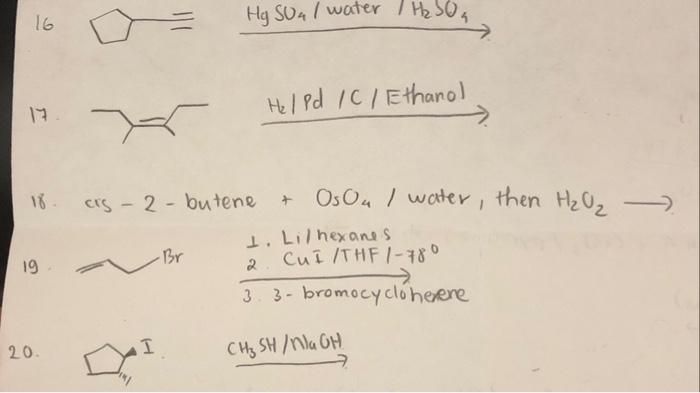 16 HgSO4 / water / H2SO4
17. H2 / Pd / C / Ethanol
18. cis - 2 - butene + OsO4 / water, then H2O2 →
1. Li / hexanes
19. Br 2. CuI / THF / -78°
3. 3 - bromocyclohexene
20. I CH3SH / NaOH